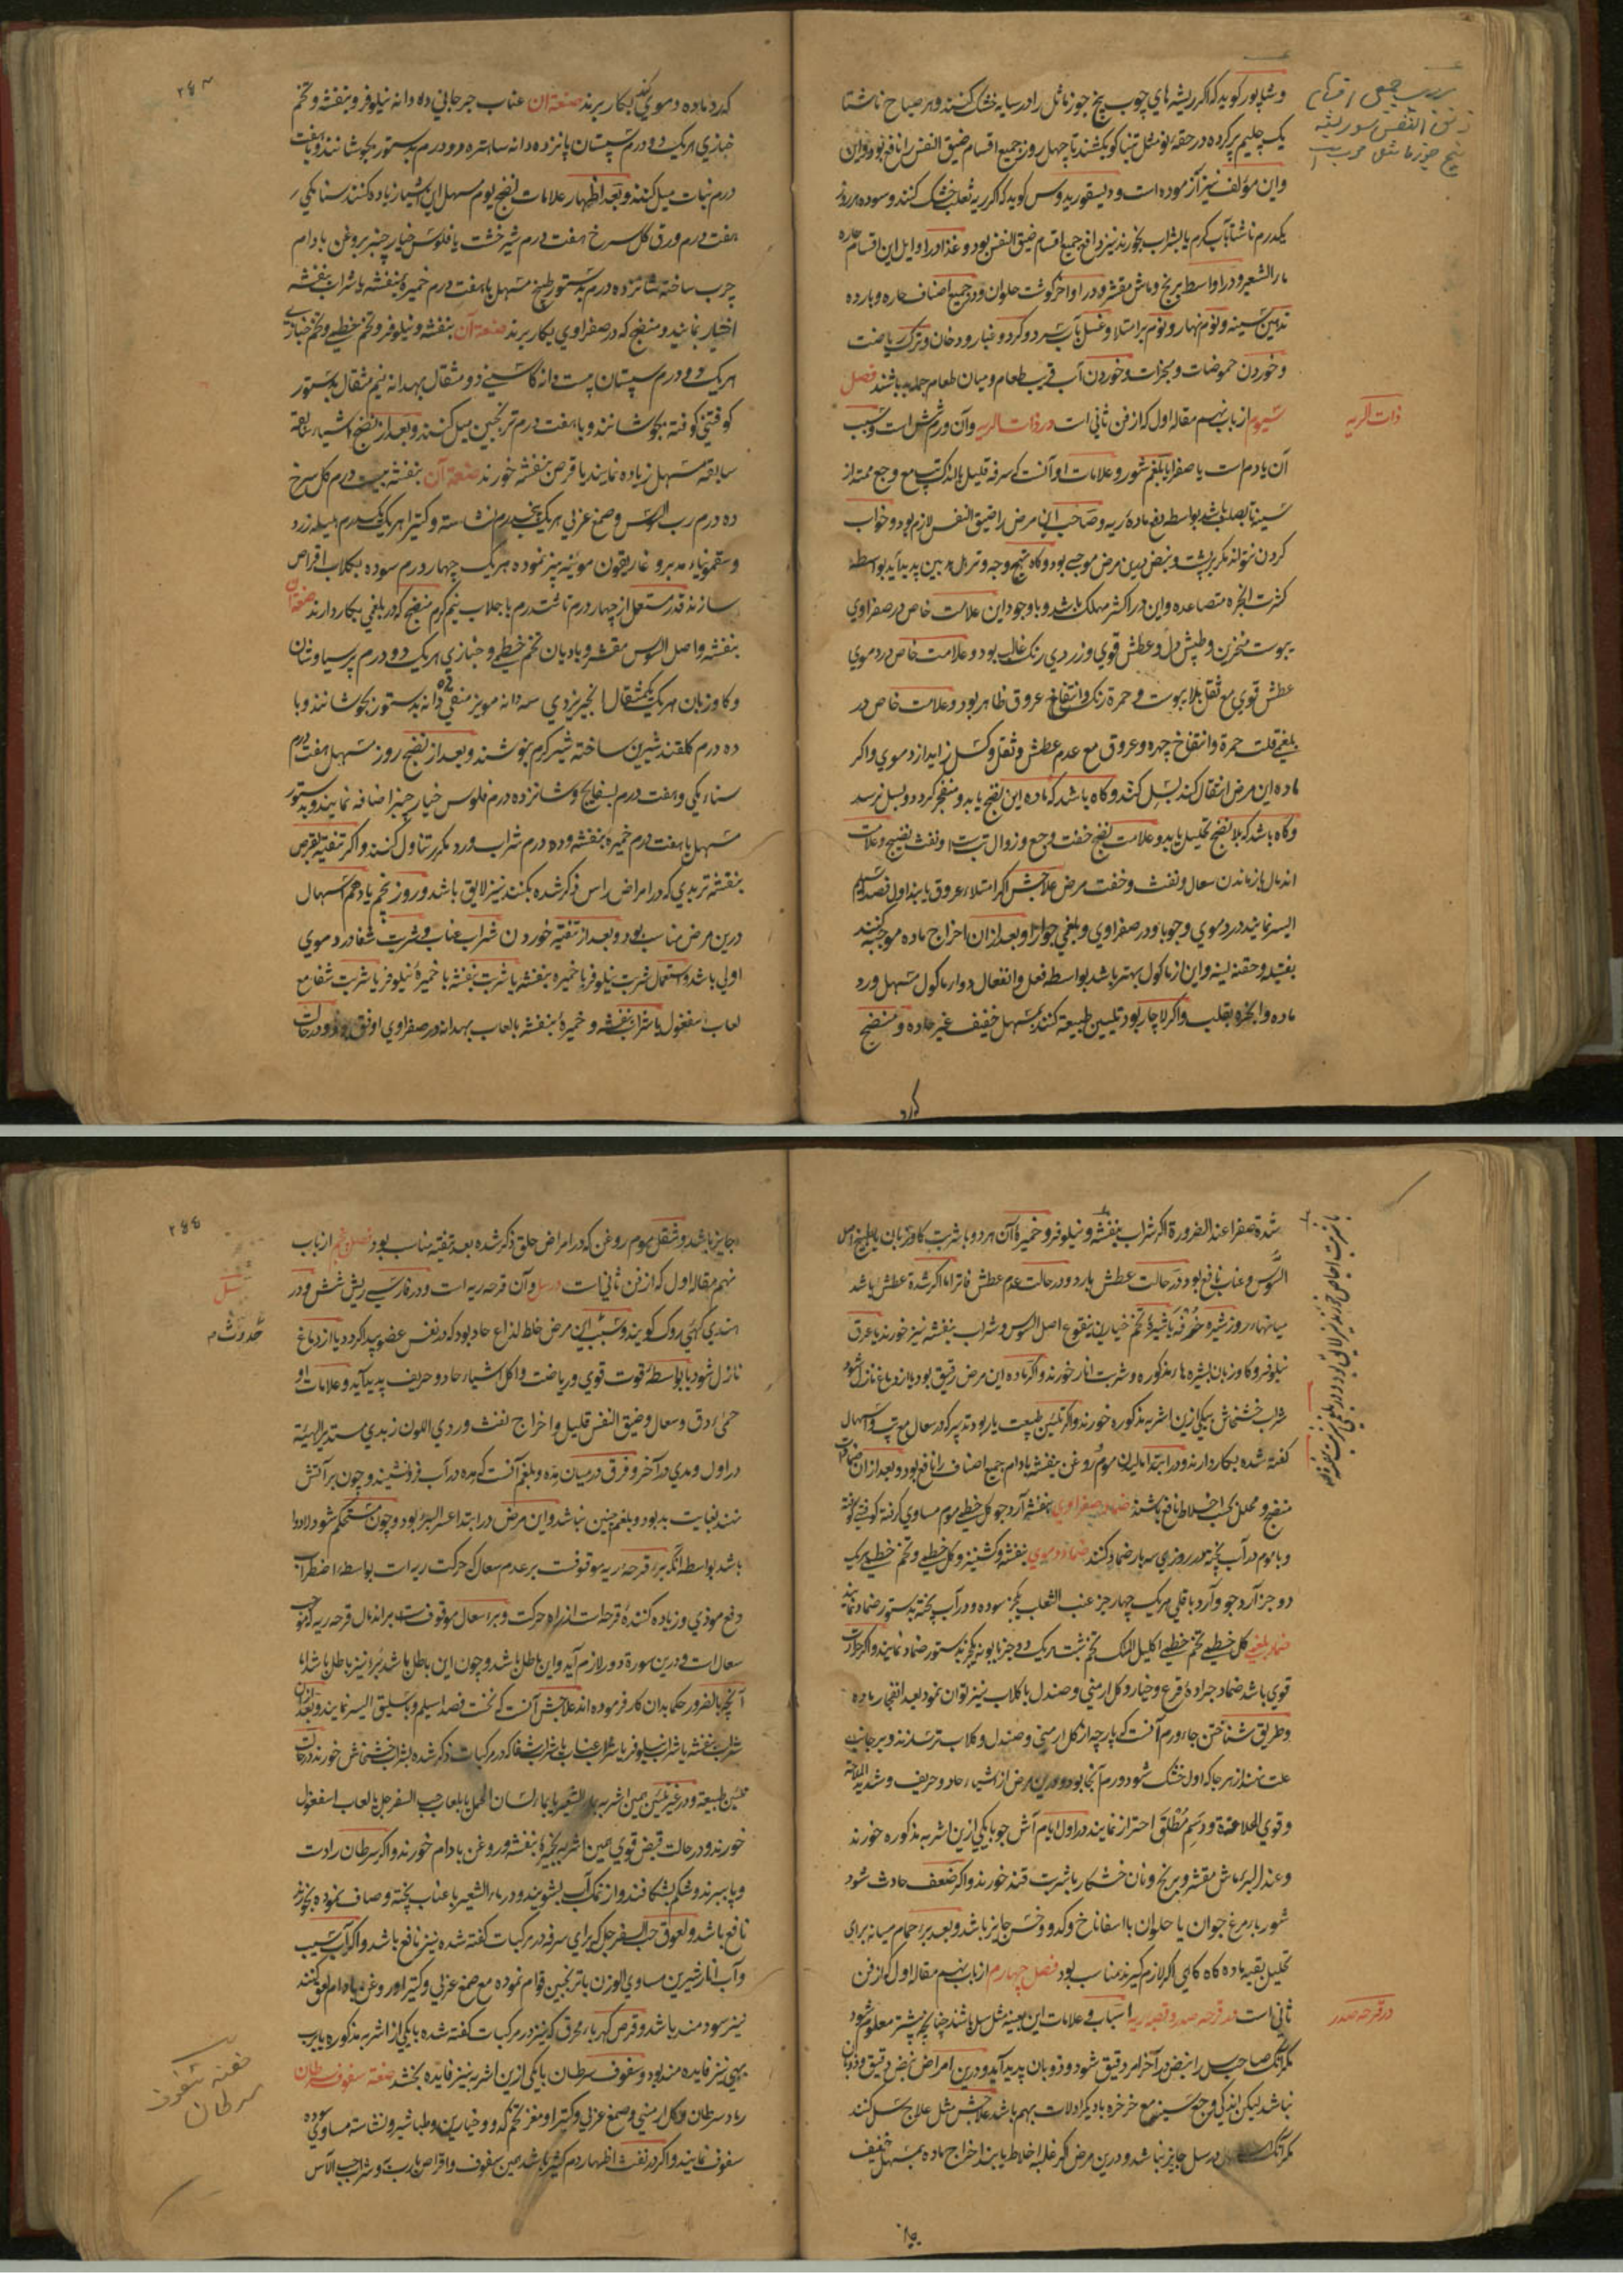 وشاپور کوید که اکر ریشه های چوب بیخ جوز ماثل را در سایه خشک کنند و هر صباح ناشتا
یک چلیم پر کرده در حقه نو مثل تنباکو بکشند تا چهل روز جمیع اقسام ضیق النفس را نافع بود
واین مؤلف نیز آزموده است و دیسقوریدوس کوید که اکر ریه ثعلب خشک کنند و سوده هر روز
یکدرم ناشتا بآب کرم یا بشراب بخورند نیز دافع جمیع اقسام ضیق النفس بود و غذا در اوایل این اقسام حاره
ماء الشعیر و در اواسط برنج و ماش مقشر و در اواخر کوشت حلوان و در جمیع اصناف حاره و بارده
تدهین سینه و نوم نهار و نوم بر امتلا و غسل بآب سرد و کرد و غبار و دخان و ترک ریاضت
و خوردن حموضات و مبخرات و خوردن آب قریب طعام و میان طعام جمله بد باشند فصل
سیوم از باب نهم مقاله اول که از فن ثانی است در ذات الریه وآن ورم شش است و سبب
ذات الریه
آن یا دم است یا صفرا یا بلغم شور و علامات او آنست که سرفه قلیل با تب مع وجع ممتد از
سینه تا بصلب باشد بواسطه دفع ماده ریه و صاحب این مرض را ضیق النفس لازم بود و خواب
کردن نتواند مکر بر پشت و نبض درین مرض موجی بود و کاه تهیج وجه و ترهل پدید آید بواسطه
کثرت ابخره متصاعده واین در اکثر مهلک باشد و با وجود این علامت خاص در صفراوی
یبوست منخرین و طپش دل و عطش قوی و زردی رنک غالب بود و علامت خاص در دموی
عطش قوی مع ثقل بلا یبوست و حمرة رنک وانتفاخ عروق ظاهر بود و علامت خاص در
بلغمی قلت حمرة و انتفاخ چهره و عروق مع عدم عطش و ثقل و کسل زاید از دموی واکر
ماده این مرض انتقال کند بسل کند و کاه باشد که ماده این نضج یابد و منفجر کردد و بسل نرسد
و کاه باشد که بلا نضج تحلیل یابد و علامت نضج خفت وجع و زوال تب است و نفث نضیج و علامت
اندمال باز ماندن سعال و نفث و خفت مرض علاجش اکر امتلاء عروق یابند اول فصد اسیلم
ایسر نمایند در دموی وجوبا و در صفراوی و بلغمی جوازا و بعد از ان اخراج ماده موجبه کنند
بفتیله و حقنه لینه واین از ماکول بهتر باشد بواسطه فعل و انفعال دوار ماکول مسهل ورد
ماده وابخره بقلب واکر لاچار بود تلیین طبیعه کنند بمسهل خفیف غیر حاده و منضج
کرد
۲۶۴
کرد ماده دموی بکار برند صنعه آن عناب جرجانی ده دانه نیلوفر و بنفشه و تخم
خبازی هر یک دو درم سپستان پانزده دانه شاهتره دو درم بدستور بجوشانند و با هفت
درم نبات میل کنند و بعد اظهار علامات نضج یوم مسهل این اشیا زیاده کنند سنا مکی
هفت درم ورق کل سرخ هفت درم شیر خشت یا فلوس خیار چنبر بروغن بادام
چرب ساخته شانزده درم بدستور طبخ مسهل با هفت درم خمیره بنفشه یا شراب بنفشه
اختیار نمایند و منضج که در صفراوی بکار برند صنعه آن بنفشه و نیلوفر و تخم خطمی و تخم خبازی
هر یک دو درم سپستان بیست دانه کاسنی دو مثقال بهدانه نیم مثقال بدستور
کوفتنی کوفته بجوشانند و با هفت درم ترنجبین میل کنند و بعد از نضج اشیاء سابقه
سابقه مسهل زیاده نمایند یا قرص بنفشه خورند صنعه آن بنفشه بیست درم کل سرخ
ده درم رب السوس و صمغ عربی هر یک پنجدرم نشاسته و کتیرا هر یک یکدرم هلیله زرد
و سقمونیاء مدبر و غاریقون موئینه بیز نموده هر یک چهار درم سوده بکلاب اقراص
سازند قدر مستعمل از چهار درم تا هشت درم با جلاب نیم کرم منضج که در بلغمی بکار دارند صنعه آن
بنفشه و اصل السوس مقشر و بادیان تخم خطمی و خبازی هر یک دو درم پرسیاوشان
و کاوزبان هر یک یکمثقال انجیر زردی سه دانه مویز منقی ده دانه بدستور بجوشانند و با
ده درم کلقند شیرین ساخته شیر کرم بنوشند و بعد از نضج روز مسهل هفت درم
سناء مکی و هفت درم بسفایج و شانزده درم فلوس خیار چنبر اضافه نمایند و بدستور
مسهل با هفت درم خمیره بنفشه و ده درم شراب ورد مکرر تناول کنند و اکر تنقیه بقرص
بنفشه تربدی که در امراض راس ذکر شده بکنند نیز لایق باشد و روز پنجم یا دهم اسهال
درین مرض مناسب بود و بعد از تنقیه خوردن شراب عناب و شربت شفا در دموی
اولی باشد و استعمال شربت نیلوفر با خمیره بنفشه یا شربت بنفشه با خمیره نیلوفر یا شربت شفا مع
لعاب اسفغول یا شراب بنفشه و خمیره بنفشه با لعاب بهدانه در صفراوی اوفق بود و در حالت
شدة صفرا عند الضرورة اکر شراب بنفشه و نیلوفر و خمیره آن هر دو با شربت کاوزبان یا طبیخ اصل
السوس و عناب نافع بود در حالت عطش بارد و در حالت عدم عطش فاتر اما اکر شدة عطش باشد
میانهاء روز شیره خرفه یا شیرهٔ تخم خیارین بنقوع اصل السوس و شراب بنفشه نیز خورند یا عرق
نیلوفر و کاوزبان بشیره هاء مذکوره و شربت انار خورند و اکر ماده این مرض رقیق بود یا از دماغ نازل شود
شراب خشخاش بیکی ازین اشربه مذکوره خورند و اکر تلیین طبیعت یار بود تدبیر که در سعال مع تب و اسهال
کفته شده بکار دارند و در ابتدا مالیدن موم روغن بنفشه بادام جمیع اصناف را نافع بود و بعد از ان ضمادات
منضج و محلل بحسب اخلاط نافع باشند ضماد صفراوی بنفشه آرد جو کل خطمی موم مساوی کرفته کوفتنی کوفته
و با موم در آب پخته در روزی سه بار ضماد کنند ضماد دموی بنفشه و کشنیز و کل خطمی و تخم خطمی هر یک
دو جز آرد جو و آرد باقلی هر یک چهار جز عنب الثعلب یکجز سوده و در آب پخته بدستور ضماد نمایند
ضماد بلغمی کل خطمی تخم خطمی اکلیل الملک تخم شبت هر یک دو جز بابونه یکجز بدستور ضماد نمایند و اکر حرارت
قوی باشد ضماد جرادهٔ قرع و خیار و کل ارمنی و صندل با کلاب نیز توان نمود بعد انفجار ماده
و طریق شناختن جاء ورم آنست که پارچه از کل ارمنی و صندل و کلاب تر سازند و بر جانب
علت نهند از هر جا که اول خشک شود ورم آنجا بود و درین مرض از اشیاء حاد و حریف و شدید الملاحة
و قوی الحلاوة و دسم مطلق احتراز نمایند در اول ایام آش جو با یکی ازین اشربه مذکوره خورند
و عند البرء ماش مقشر و برنج و نان خشکار با شربت قند خورند و اکر ضعف حادث شود
شورباء مرغ جوان یا حلوان با اسفاناخ و کدو و خس جایز باشد و بعد برء حمام میانه برای
تحلیل بقیه ماده کاه کاهی اکر لازم کیرند مناسب بود فصل چهارم از باب نهم مقاله اول که از فن
ثانی است در قرحه صدر و قصبه ریه اسباب و علامات این بعینه مثل سل باشند چنانچه پیشتر معلوم شود
در قرحه صدر
مکر آنکه صاحب سل را نبض در آخر امر دقیق شود و ذوبان پدید آید و درین امراض نبض دقیق و ذوبان
نباشد لیکن اندکی وجع سینه مع خرخره با دیکر ادلات بهم باشد علاجش مثل علاج سل کنند
مکر آنکه در سل جایز نباشد و درین مرض اکر غلبه اخلاط یابند اخراج ماده بمسهل خفیف
جایز
۲۶۵
جایز باشد و شقل بموم روغن که در امراض حلق ذکر شده بعد تنقیه مناسب بود فصل پنجم از باب
نهم مقاله اول که از فن ثانی است در سل وآن قرحه ریه است و در فارسی ریش شش و در
سل
هندی کهئی روک کویند و سبب این مرض خلط لذاع حاد بود که در نفس عضو پیدا کردد یا از دماغ
نازل شود یا بواسطهٔ قوت قوی و ریاضت و اکل اشیاء حاد و حریف پدید آید و علامات او
حمیٰ دق و سعال و ضیق النفس قلیل و اخراج نفث وردی اللون زبدی مستدیر الهیئة
در اول و مدی در آخر و فرق در میان مده و بلغم آنست که مده در آب فرو نشیند و چون بر آتش
نهند بغایت بد بود و بلغم چنین نباشد و این مرض در ابتدا عسر البرء بود و چون مستحکم شود لادوا
باشد بواسطه آنکه برء قرحه ریه موقوفست بر عدم سعال که حرکت ریه است بواسطه اضطراب
دفع موذی و زیاده کنندهٔ قرحه است از راه حرکت و برء سعال موقوفست بر اندمال قرحه ریه که موجب
سعال است و درین صورة دور لازم آید واین باطل باشد و چون این باطل باشد برء نیز باطل باشد اما
آنچه بالضرور حکما بدان کار فرموده اند علاجش آنست که نخست فصد اسیلم و باسلیق ایسر نمایند و بعد از ان
شراب بنفشه یا شراب نیلوفر یا شراب عناب یا شراب شفا که در مرکبات ذکر شده بشراب خشخاش خورند در حالت
تلیین طبیعة و در غیر تلیین همین اشربه بماء الشعیر یا بماء لسان الحمل یا بلعاب حب السفرجل یا لعاب اسفغول
خورند و در حالت قبض قوی همین اشربه بخمیرهٔ بنفشه و روغن بادام خورند و اکر سرطان را دست
و پا ببرند و شکم بشکافند و از نمک آب بشویند و در ماء الشعیر با عناب پخته و صاف نموده بخورند
نافع باشد و لعوق حب السفرجل که برای سرفه در مرکبات کفته شده نیز نافع باشد و اکر آب سیب
و آب انار شیرین مساوی الوزن با ترنجبین قوام نموده مع صمغ عربی و کتیرا و روغن بادام لعق کنند
نیز سودمند باشد و قرص کهرباء محرق که نیز در مرکبات کفته شده با یکی از اشربه مذکوره یا رب
بهی نیز فایده مند بود و سفوف سرطان با یکی ازین اشربه نیز فایده بخشد صفة سفوف سرطان
صفة سفوف
سرطان
رماد سرطان و کل ارمنی و صمغ عربی و کتیرا و مغز تخم کدو و خیارین و طباشیر و نشاسته مساوی سوده
سفوف نمایند و اکر در نفث اظهار دم کثیر باشد همین سفوف و اقراص با رب و شراب حب الآس